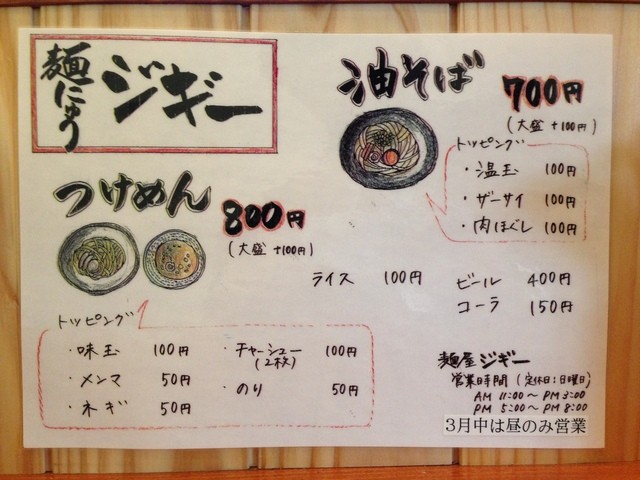 麺にゅう
ジギー
油そば 700円
(大盛 +100円)
トッピング
・温玉 100円
・ザーサイ 100円
・肉ほぐし 100円
つけめん 800円
(大盛 +100円)
ライス 100円
ビール 400円
コーラ 150円
トッピング
・味玉 100円
・チャーシュー(2枚) 100円
・メンマ 50円
・のり 50円
・ネギ 50円
麺屋 ジギー
営業時間 (定休日:日曜日)
AM 11:00〜PM 3:00
PM 5:00〜PM 8:00
3月中は昼のみ営業